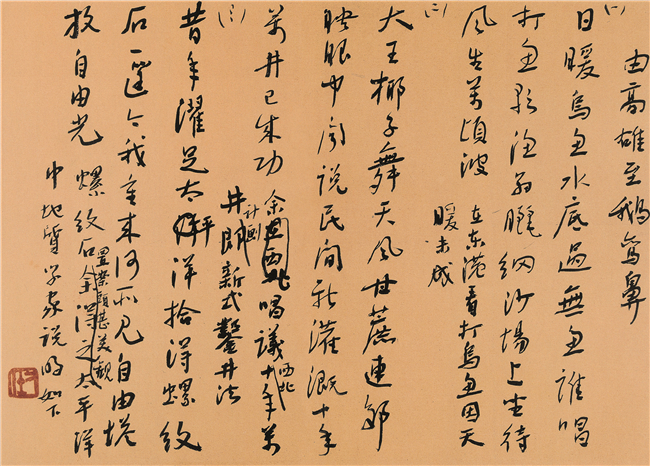 (一)
由高雄至鵝鸞鼻
日暖烏魚水底過無魚誰唱
打魚歌漁翁曬網沙場上坐待
風生萬頃波 在東港看打烏魚因天
暖未成
(二)
大王椰子舞天風甘蔗連鄉
映眼中聞說民間新灌溉十年
萬井已成功 余唱議西北十年萬
井計劃即新式鑿井法
(三)
昔年濯足太平洋拾得螺紋
石一筐今我重來何所見自由塔
放自由光 螺紋石余得之太平洋
置案頭甚美觀
中地質學家說明如下